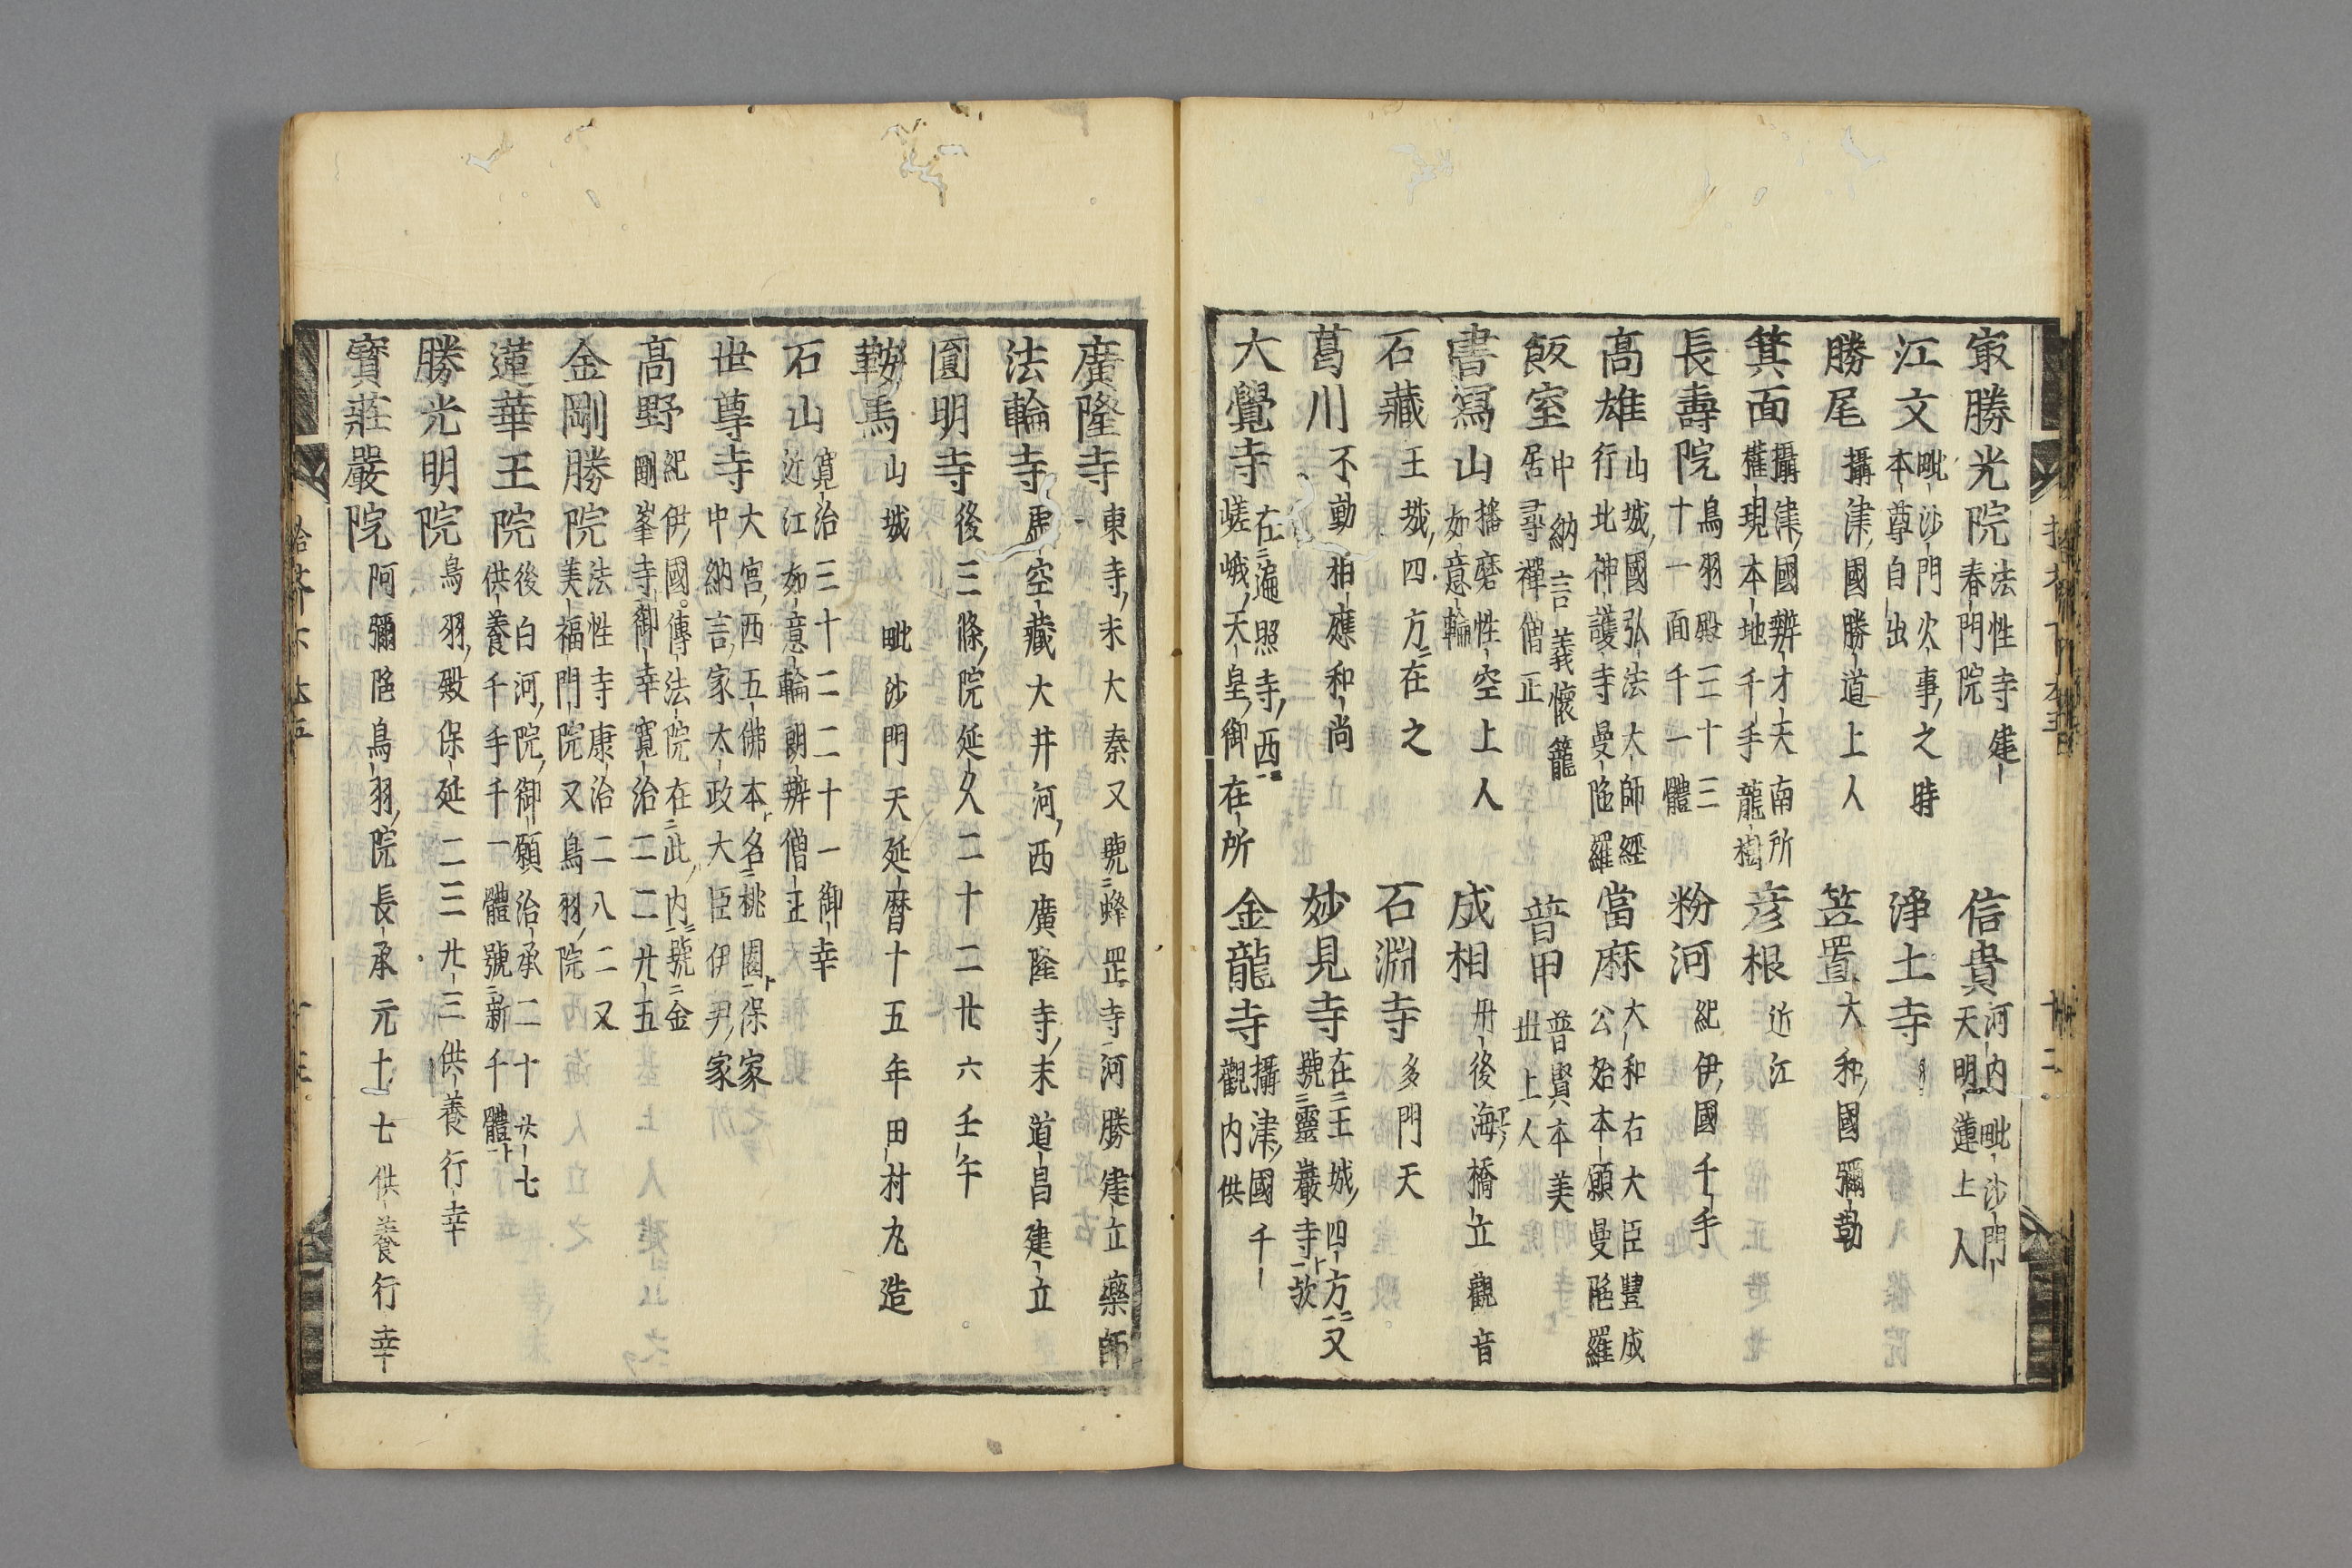 冣勝光院 法性寺建 春門院 信貴 河内 毗沙門 天明蓮上人
江文 毗沙門火事之時 本尊自出 淨土寺
勝尾 攝津國勝道上人 笠置 大和國彌勒
箕面 攝津國辨才天南所 權現本地千手龍樹 彦根 近江
長壽院 鳥羽殿三十三 十一面千一體 粉河 紀伊國千手
髙雄 山城國弘法大師經 行北神護寺曼陁羅 當麻 大和右大臣豐成 公始本願曼陁羅
飯室 中納言義懷籠 居尋禪僧正 普甲 普賢本美 世上人
書寫山 播磨性空上人 如意輪 成相 丹後海橋立觀音
石藏 王城四方在之 石淵寺 多門天
葛川 不動相應和尚 妙見寺 在王城四方又 號靈巖寺欤
大覺寺 在遍照寺西 嵯峨天皇御在所 金龍寺 攝津國千 觀内供
廣隆寺 東寺末大秦又號蜂罡寺河勝建立藥師
法輪寺 虚空藏大井河西廣隆寺末道昌建立
圓明寺 後三條院延久二十二廿六壬午
鞍馬 山城 毗沙門天延暦十五年田村丸造
石山 寛治三十二二十一御幸 近江如意輪朗辨僧正
世尊寺 大宮西五佛本名桃園保家 中納言家太政大臣伊尹家
髙野 紀伊國傳法院在此内號金 剛峯寺御幸寛治二二廿五
金剛勝院 法性寺康治二八二又 美福門院又鳥羽院
蓮華王院 後白河院御願治承二十廿七 供養千手千一體號新千體
勝光明院 鳥羽殿保延二三廿三供養行幸
寳莊嚴院 阿彌陁鳥羽院長承元十七供養行幸